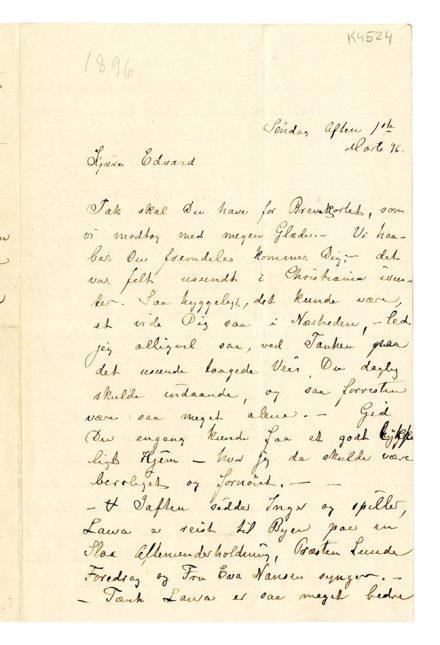 K4524
1896
Søndag Aften 1ste
Marts 96.
Kjære Edvard
Tak skal Du have for Brevkortet, som
vi modtog med megen Glæde. – Vi haa-
ber Du fremdeles kommer Dig; – det
var fælt usundt i Christiania ivin-
ter. Saa hyggeligt, det kunde være,
at vide Dig saa i Nærheden, – led
jeg alligevel saa, ved Tanken paa
det usunde taagede Veir, Du daglig
skulde indaande, og saa forresten
være saa meget alene. – Gid
Du engang kunde faa et godt lykke
ligt Hjem – hvor jeg da skulde være
beroliget og fornøiet. – –
– I Iaften sidder Inger og spiller,
Laura er reist til Byen paa en
Slags Aftenunderholdning, Præsten Lunde
Foredrag og Fru Eva Nansen synger. –
– Tænk Laura er saa meget bedre